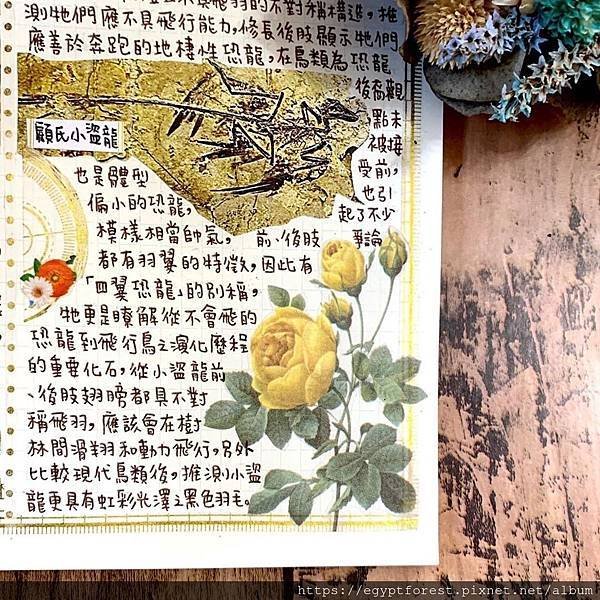 不具飛羽的不對稱構造，推
測牠們應不具飛行能力，修長後肢顯示牠們
應善於奔跑的地棲性恐龍，在鳥類為恐龍
後裔觀
點未
被接
受前，
也引
起了不少
爭論
顧氏小盜龍
也是體型
偏小的恐龍，
模樣相當帥氣，前、後肢
都有羽翼的特徵，因此有
「四翼恐龍」的別稱，
牠更是瞭解從不會飛的
恐龍到飛行鳥之演化歷程
的重要化石，從小盜龍前
、後肢翅膀都具不對
稱飛羽，應該會在樹
林間滑翔和動力飛行，另外
比較現代鳥類後，推測小盜
龍更具有虹彩光澤之黑色羽毛。
https://egyptforest.pixnet.net/album